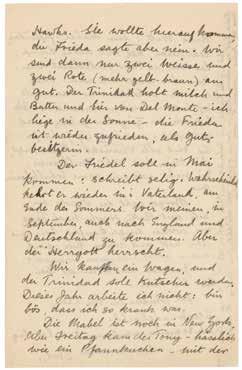 Hawks. Sie wollte hierauf kommen,
die Frieda sagte aber nein. Wir
sind dann nur zwei Weisse und
zwei Rote (mehr gelb-braun) am
Gut. Der Trinidad holt milch und
Butter und bier von Del Monte - ich
liege in der Sonne - die Frieda
ist wieder zufrieden, als Guts-
besitzerin.
Der Friedel soll in Mai
kommen: schreibt selig. Wahrscheinlich
kehrt er wieder in's Vaterland, am
Ende des Sommers. Wir meinen, in
September, auch nach England und
Deutschland zu kommen. Aber
der Herrgott herrscht.
Wir kauften ein Wagen, und
der Trinidad soll Kutscher werden.
Dieses Jahr arbeite ich nicht: bin
bös, dass ich so krank war.
Die Mabel ist noch in New York,
Freitag kam der Tony - hässlich
wie ein Pfannkuchen - mit der